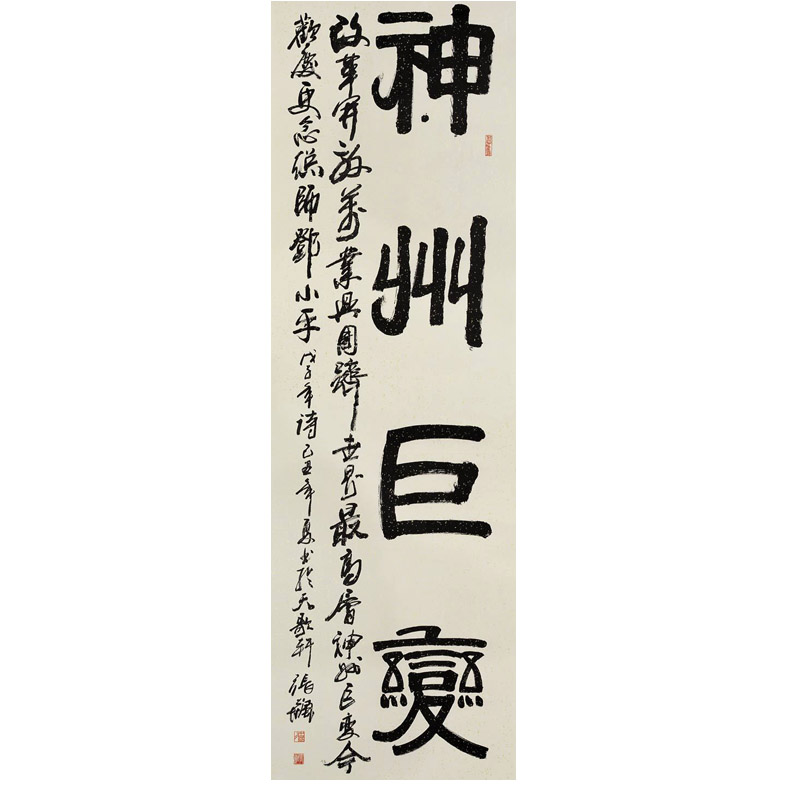 神州巨變
改革開放萬業興國躋世界最高層神州巨變今
歡慶更念總師鄧小平 戊子年詩己丑年夏書於歌軒 張飆